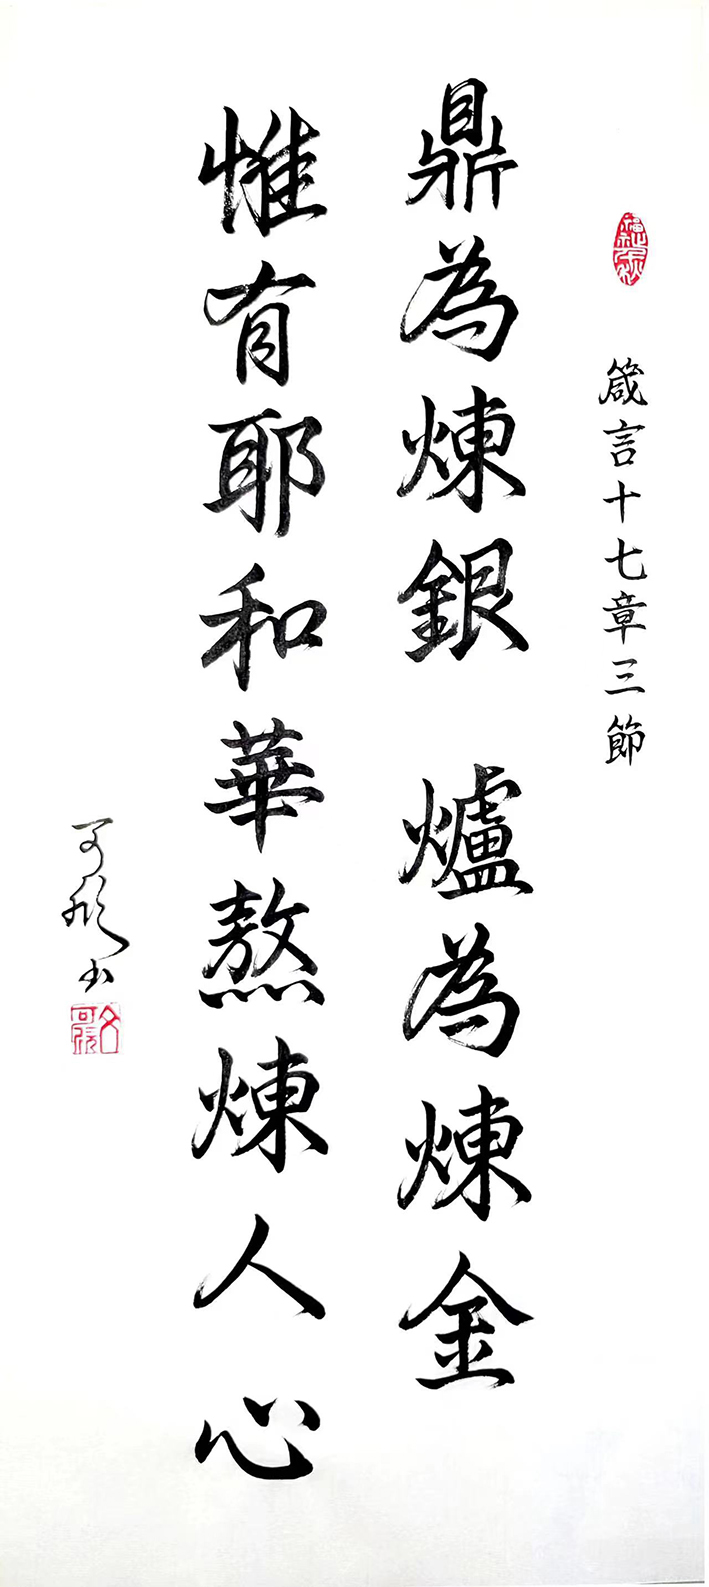 箴言十七章三節
鼎為煉銀 爐為煉金
惟有耶和華熬煉人心